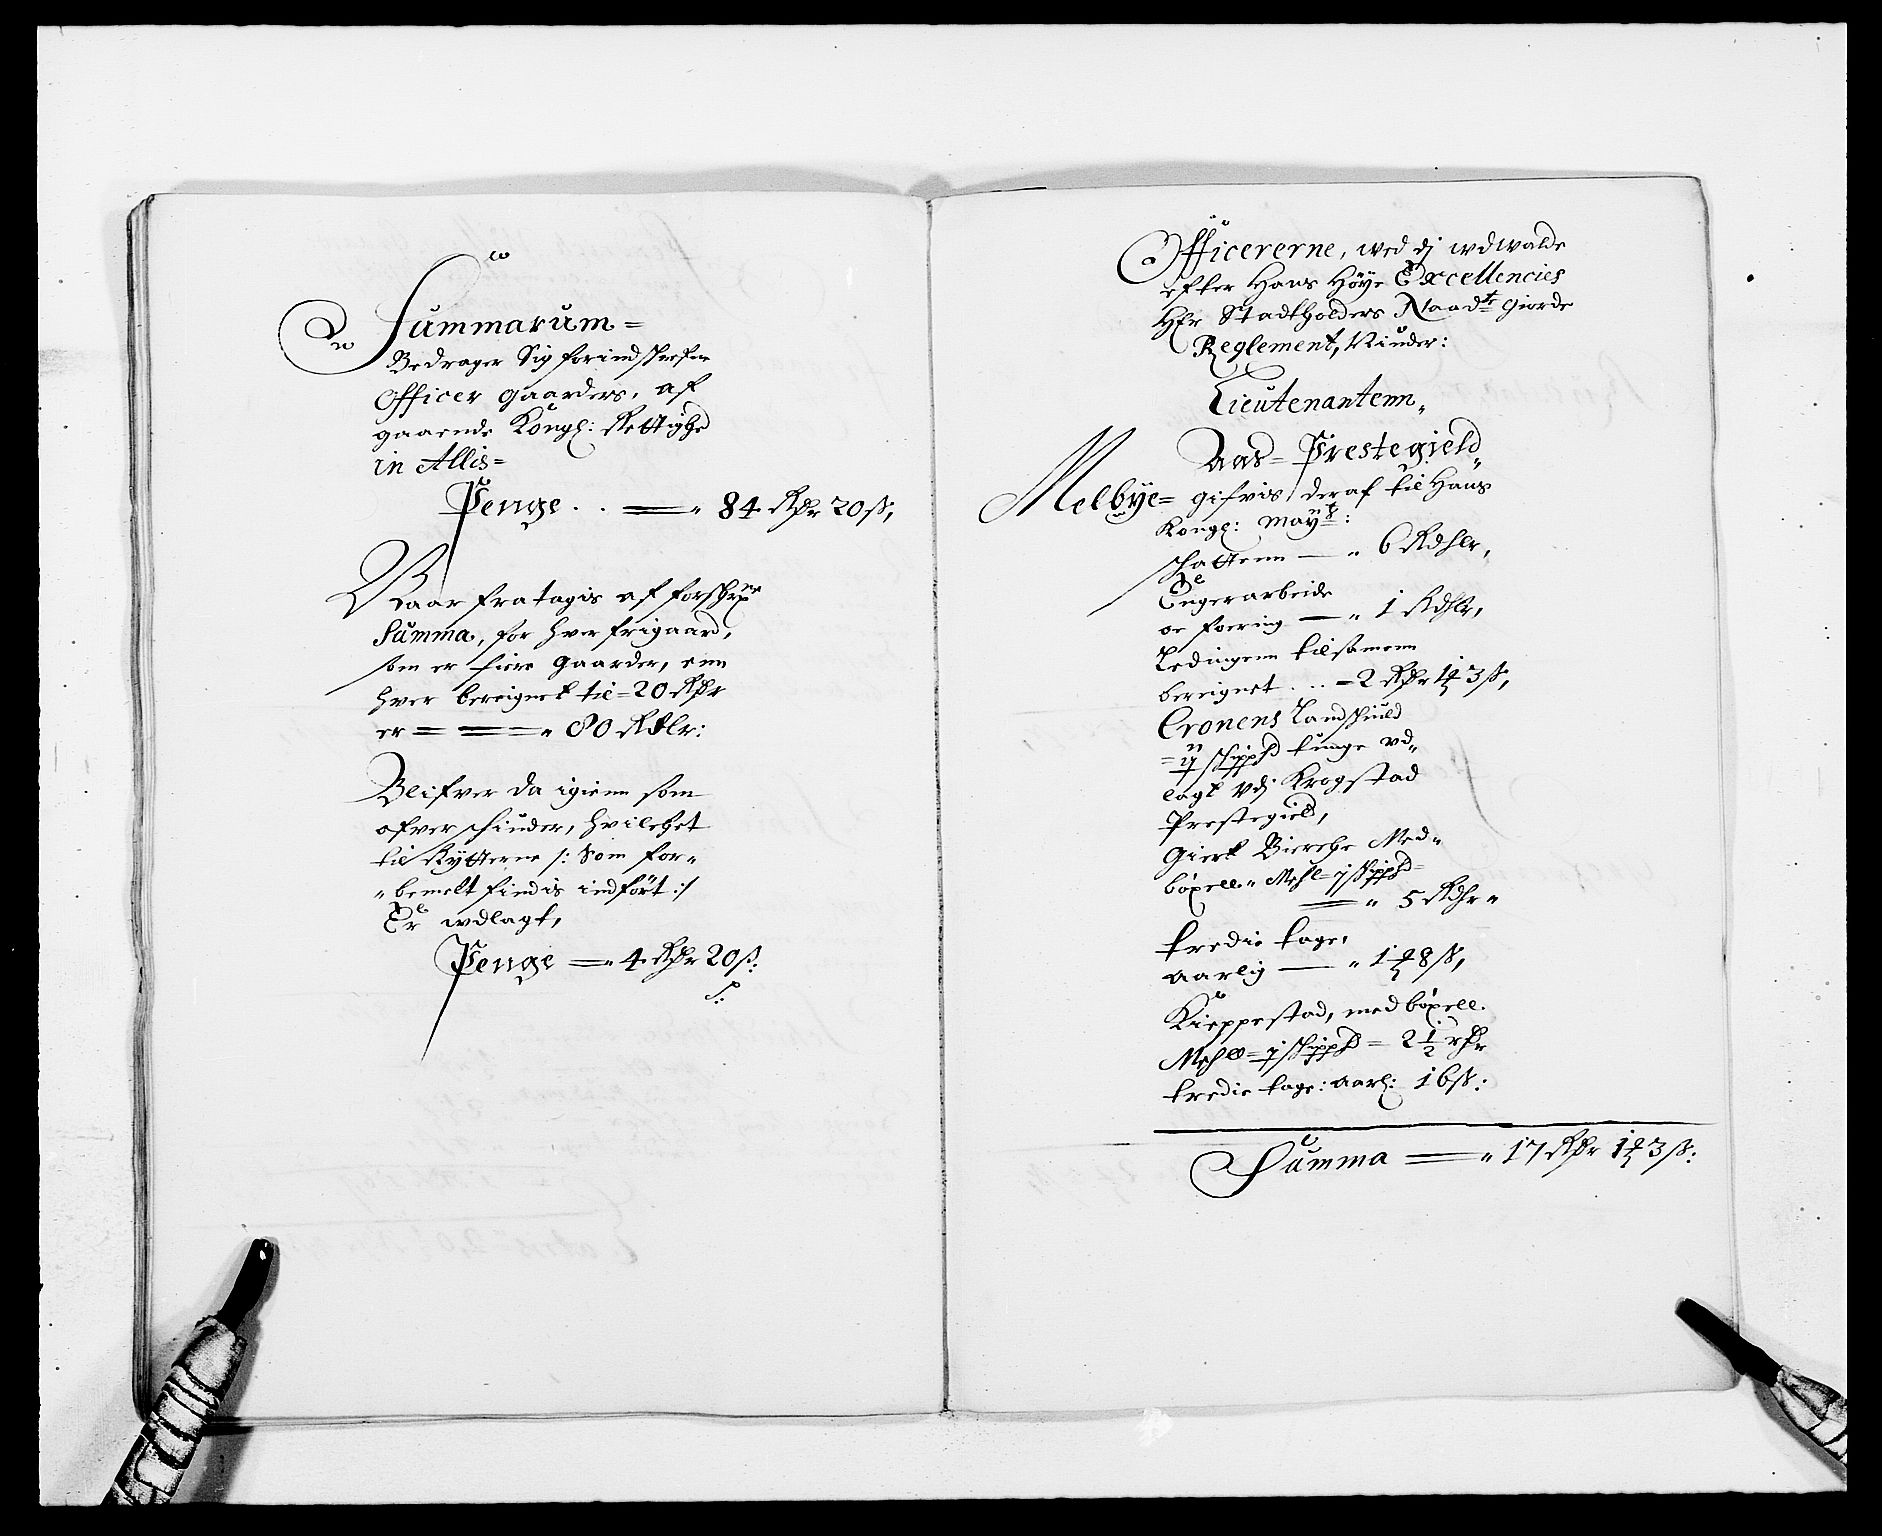 Summarum =
Bedrager Sig forindskrefne
Officer gaarders, af
gaaende Kongl: Rettighed
in Allis =
Penge . . = 84 Rdr 20 ß,
Naar fratagis af forschr:
Summa, for hver frigaard,
som er fiere gaarder, enn
hver bereignet til = 20 Rdr
er = = 80 Rdlr:
Blifver da igienn som
ofverschiuder, hvilchet
til Rytterne /: Som for-
bemelt findis indført :/
Er udlagt,
Penge = 4 Rdr 20 ß:
Officererne, wed dj udwalde
efter Hans Høye Excellencies
Hr Stadtholders Naadte giorde
Reglement, Niuder:
Lieutenantenn,
Aas = Prestegield,
Melbye = gifvis deraf til Hans
Kongl: Mayt:
schattenn — 6 Rdhlr,
Engerarbeide
oc foering — 1 Rdhlr,
Ledingenn tilsamenn
bereignet . . = 2 Rdr 1 ort 3 ß,
Cronens Landschiuld
= ij schippd tunge ud-
lagt udj Krogstad
Prestegield,
Giert Bierche Med-
bøxell. Mehl = j schippd =
= 5 Rdhr
tredie tage,
aarlig — 1 ort 8 ß,
Kieppestad, med bøxell.
Mehl = j schippd = 2 1/2 rdr
tredie tage: aarl: 16 ß:
Summa = 17 Rdr 1 ort 3 ß: